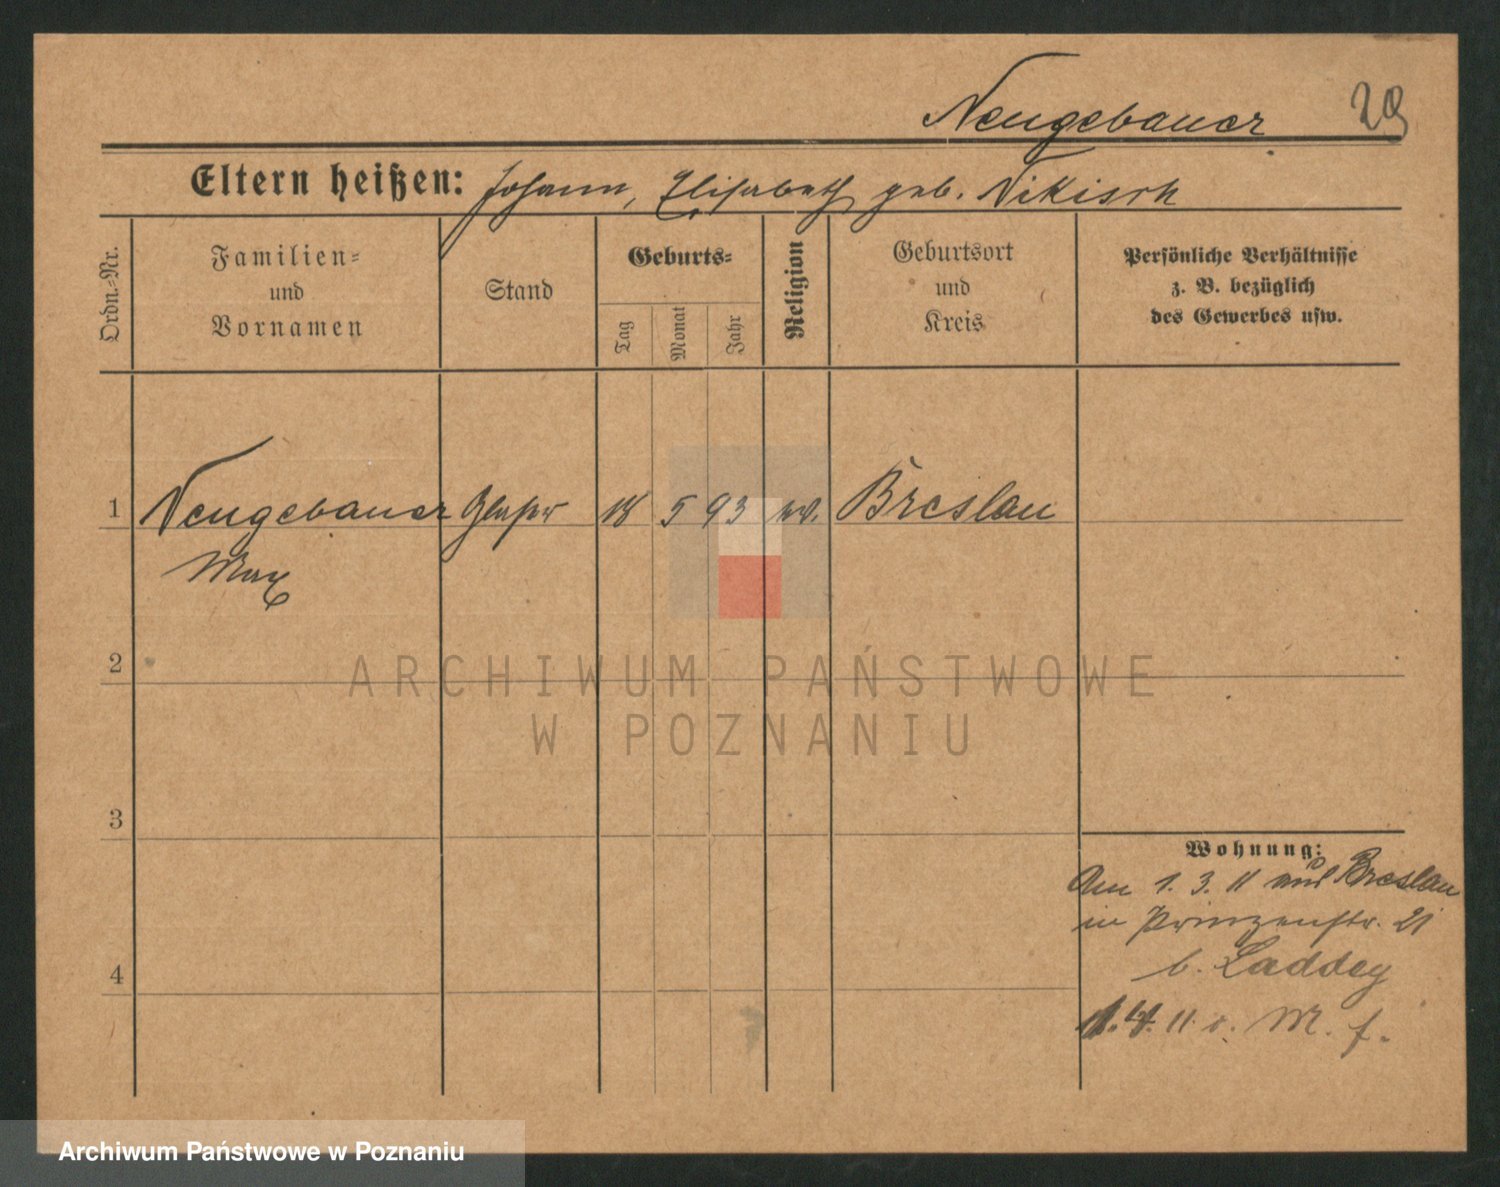 Neugebauer 29
Eltern heißen: Johann, Elisabeth geb. Nikisch
Ordn.-Nr.
Familien-
und
Vornamen
Stand
Geburts-
Tag
Monat
Jahr
Religion
Geburtsort
und
Kreis
Persönliche Verhältnisse
z. B. bezüglich
des Gewerbes usw.
1 Neugebauer Glaser 18 5 93 ev. Breslau
Max
2
3
4
Wohnung:
Am 1. 3. 11 aus Breslau
in Prinzenstr. 21
b. Laddey
1. 4. 11 o. M. f.
ARCHIWUM PAŃSTWOWE
W POZNANIU
Archiwum Państwowe w Poznaniu